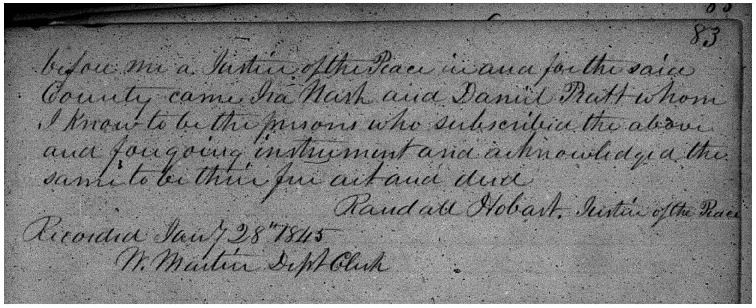 83
before me a Justice of the Peace in and for the said
County came Ira Nash and Daniel Pratt whom
I know to be the persons who subscribed the above
and foregoing instrument and acknowledged the
same to be their free act and deed
Randall Hobart. Justice of the Peace
Recorded Jany 28" 1845
W. Martin Dept Clerk